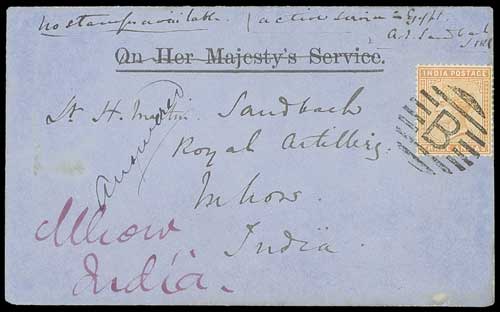 No stamp available. (active service Egypt.
A. E. Sandbach
On Her Majesty's Service.
INDIA POSTAGE
Lt. H. Martin Sandbach
Royal Artillery
B
Answered
Mhow
India
Mhow
India.